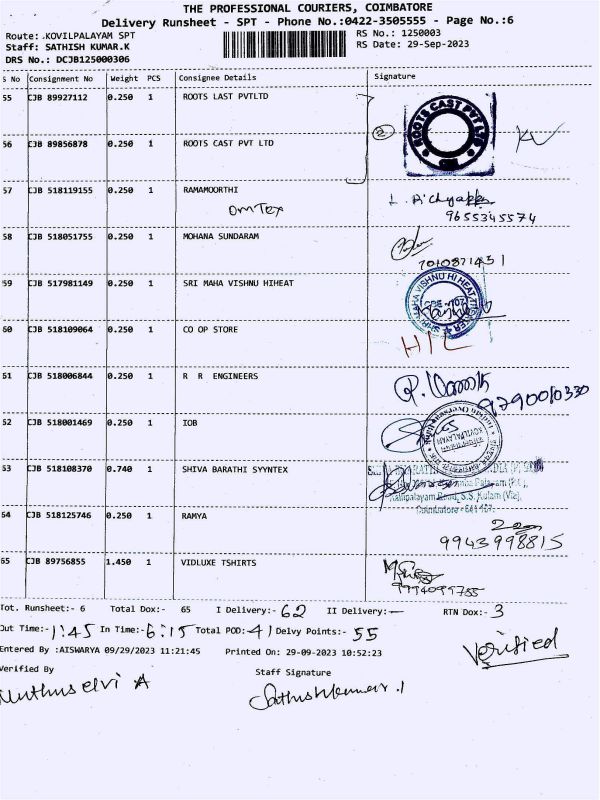 THE PROFESSIONAL COURIERS, COIMBATORE
Delivery Runsheet - SPT - Phone No.:0422-3505555 - Page No.:6
Route: KOVILPALAYAM SPT
RS No.: 1250003
Staff: SATHISH KUMAR.K
RS Date: 29-Sep-2023
DRS No.: DCJB125000306
S No Consignment No Weight PCS Consignee Details Signature
55 CJB 89927112 0.250 1 ROOTS LAST PVTLTD
ROOTS CAST PVT LTD
2
56 CJB 89856878 0.250 1 ROOTS CAST PVT LTD
57 CJB 518119155 0.250 1 RAMAMOORTHI
OMTEX
9655345574
58 CJB 518051755 0.250 1 MOHANA SUNDARAM
7010871451
59 CJB 517981149 0.250 1 SRI MAHA VISHNU HIHEAT
60 CJB 518109064 0.250 1 CO OP STORE
HIL
61 CJB 518006844 0.250 1 R R ENGINEERS
9790010330
52 CJB 518001469 0.250 1 IOB
53 CJB 518108370 0.740 1 SHIVA BARATHI SYYNTEX
Kalipalayam Road, S.S. Kulam (Via),
Coimbatore - 641 107.
54 CJB 518125746 0.250 1 RAMYA
9943998815
65 CJB 89756855 1.450 1 VIDLUXE TSHIRTS
9994099755
Tot. Runsheet:- 6 Total Dox:- 65 I Delivery:- 62 II Delivery:- — RTN Dox:- 3
Out Time:- 1:45 In Time:- 6:15 Total POD:- 41 Delvy Points:- 55
Entered By :AISWARYA 09/29/2023 11:21:45 Printed On: 29-09-2023 10:52:23
Verified
Verified By
Staff Signature
Muthuselvi A
Sathishkumar.